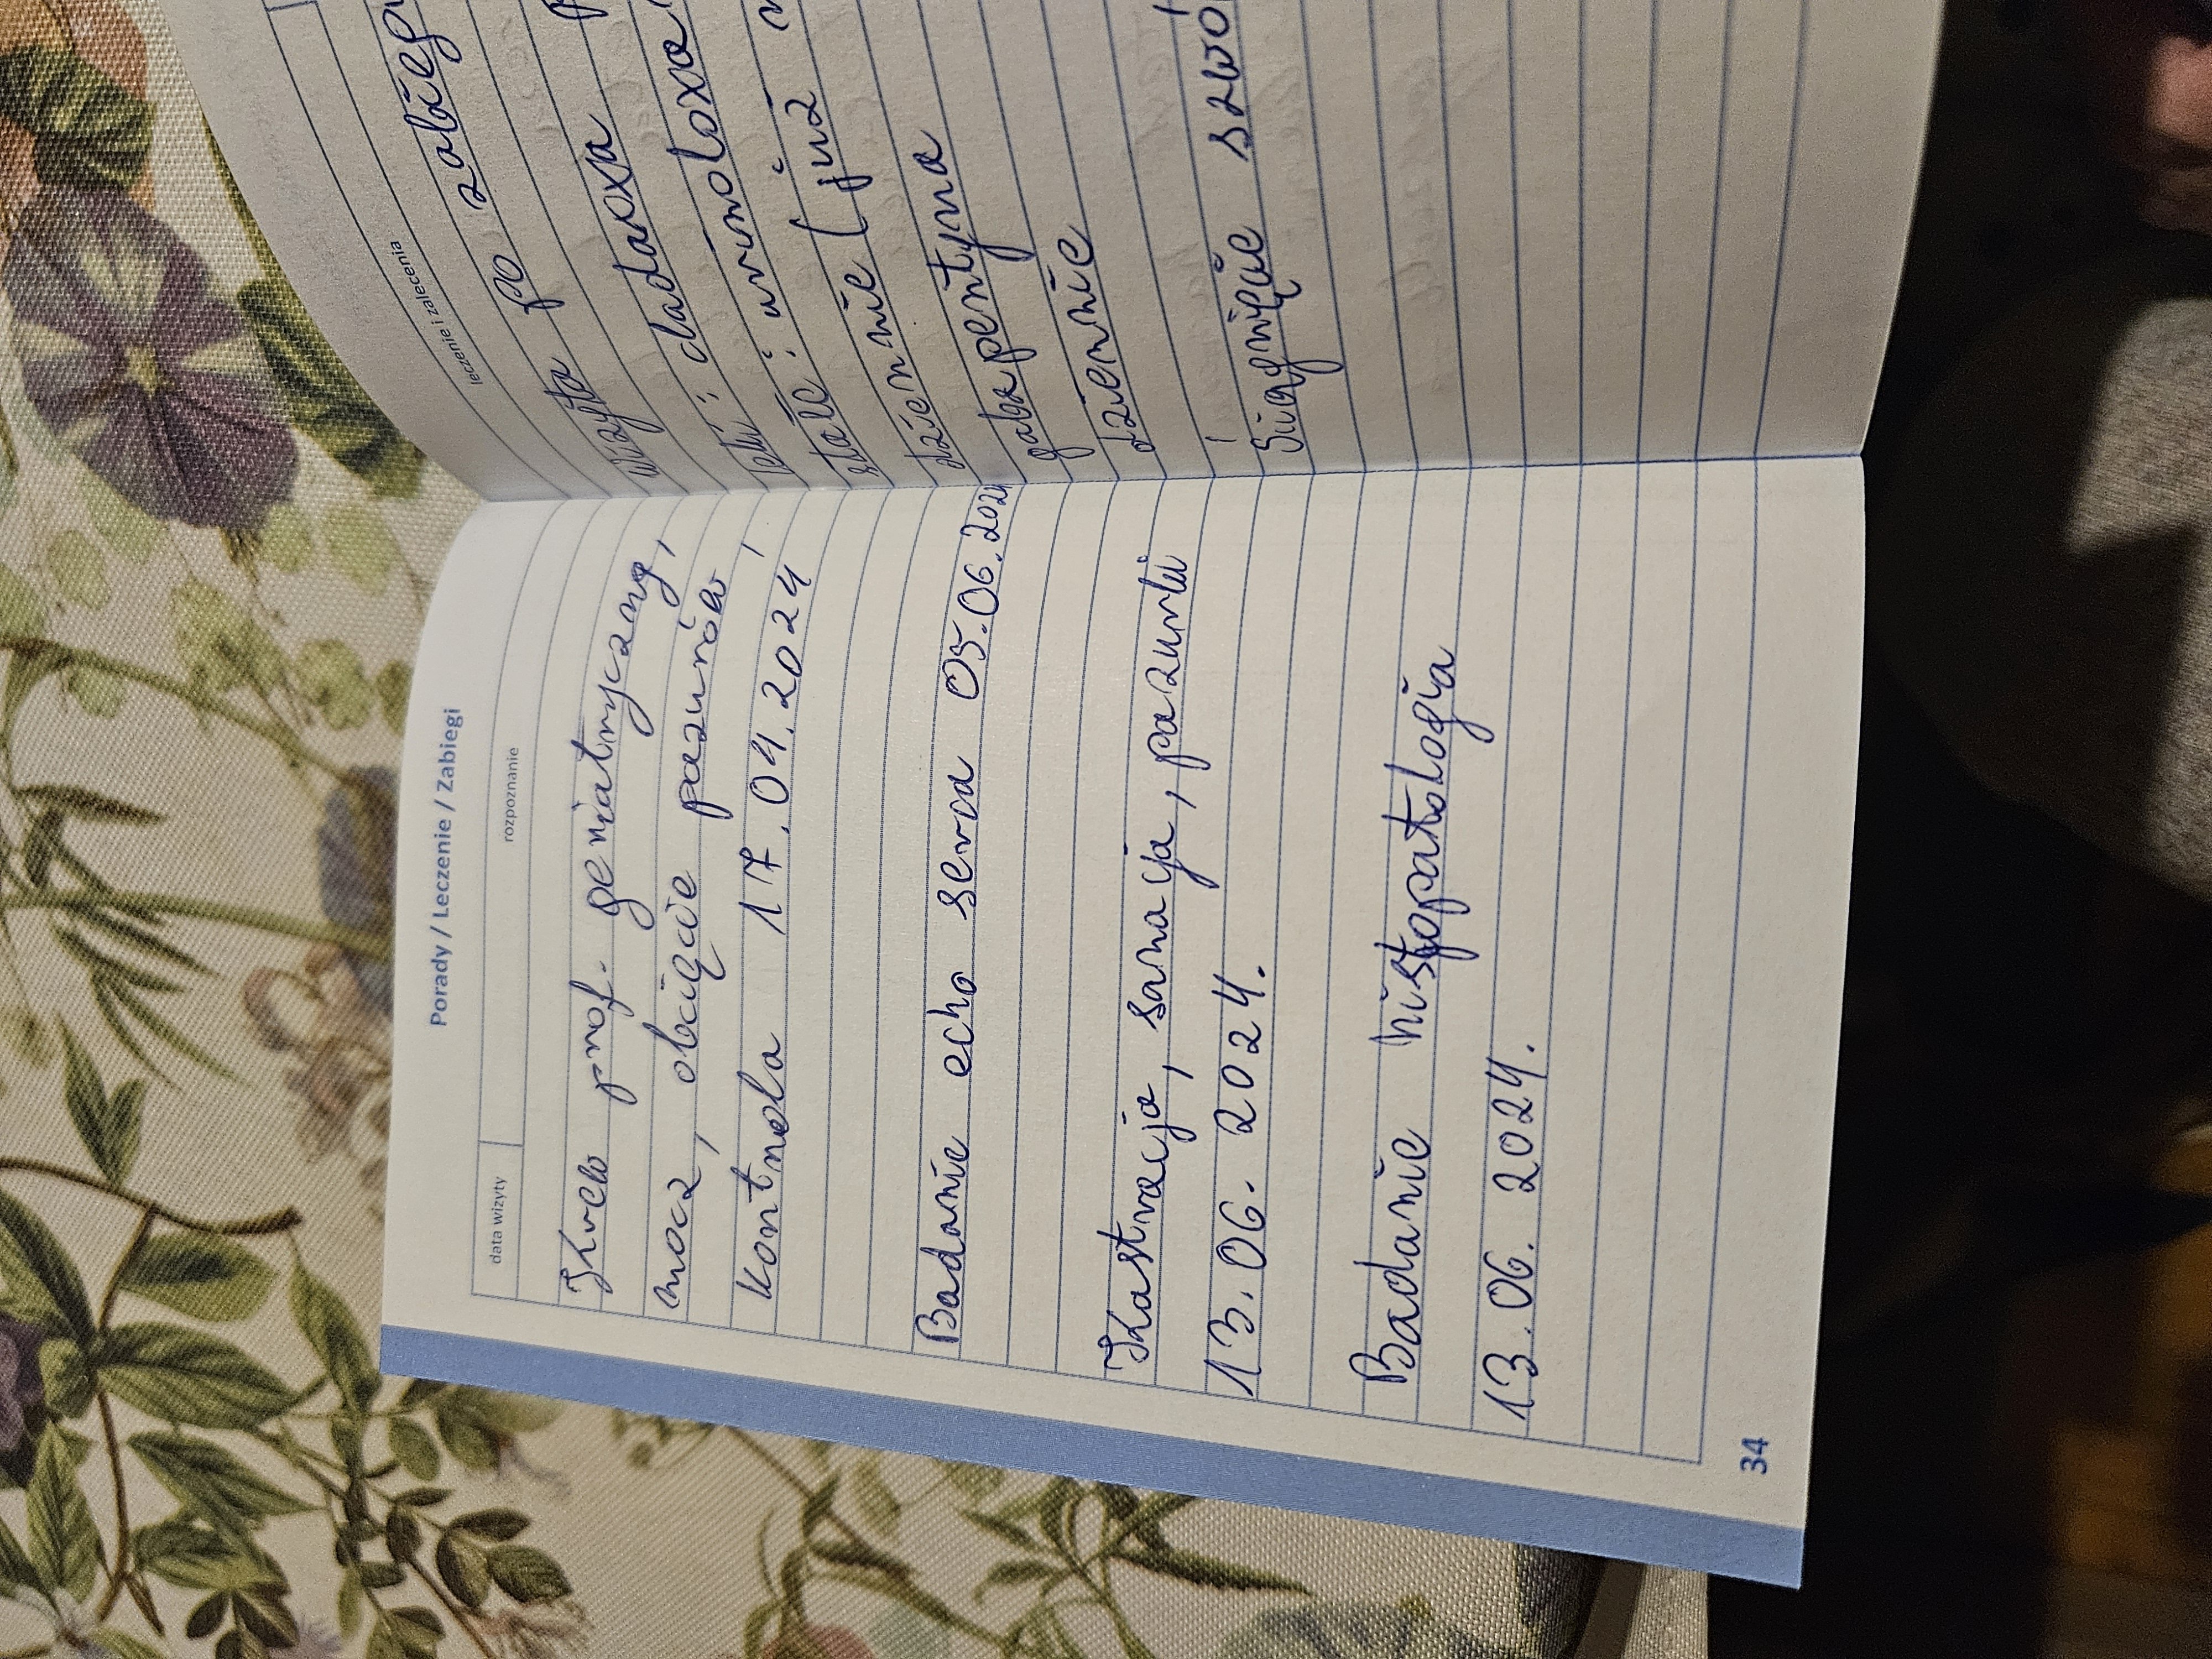 Porady / Leczenie / Zabiegi
data wizyty
rozpoznanie
Krew prof. geriatryczny,
mocz, obcięcie pazurów,
kontrola 17.04.2024
Badanie echo serca 05.06.2024
Kastracja, sanacja, pazurki
13.06.2024.
Badanie histopatologia
13.06.2024.
34
leczenie i zalecenia
wizyta po zabiegu
leki:
stałe: urinoloxa
dziennie (już
gabapentyna
dziennie
Ściągnięcie szwó